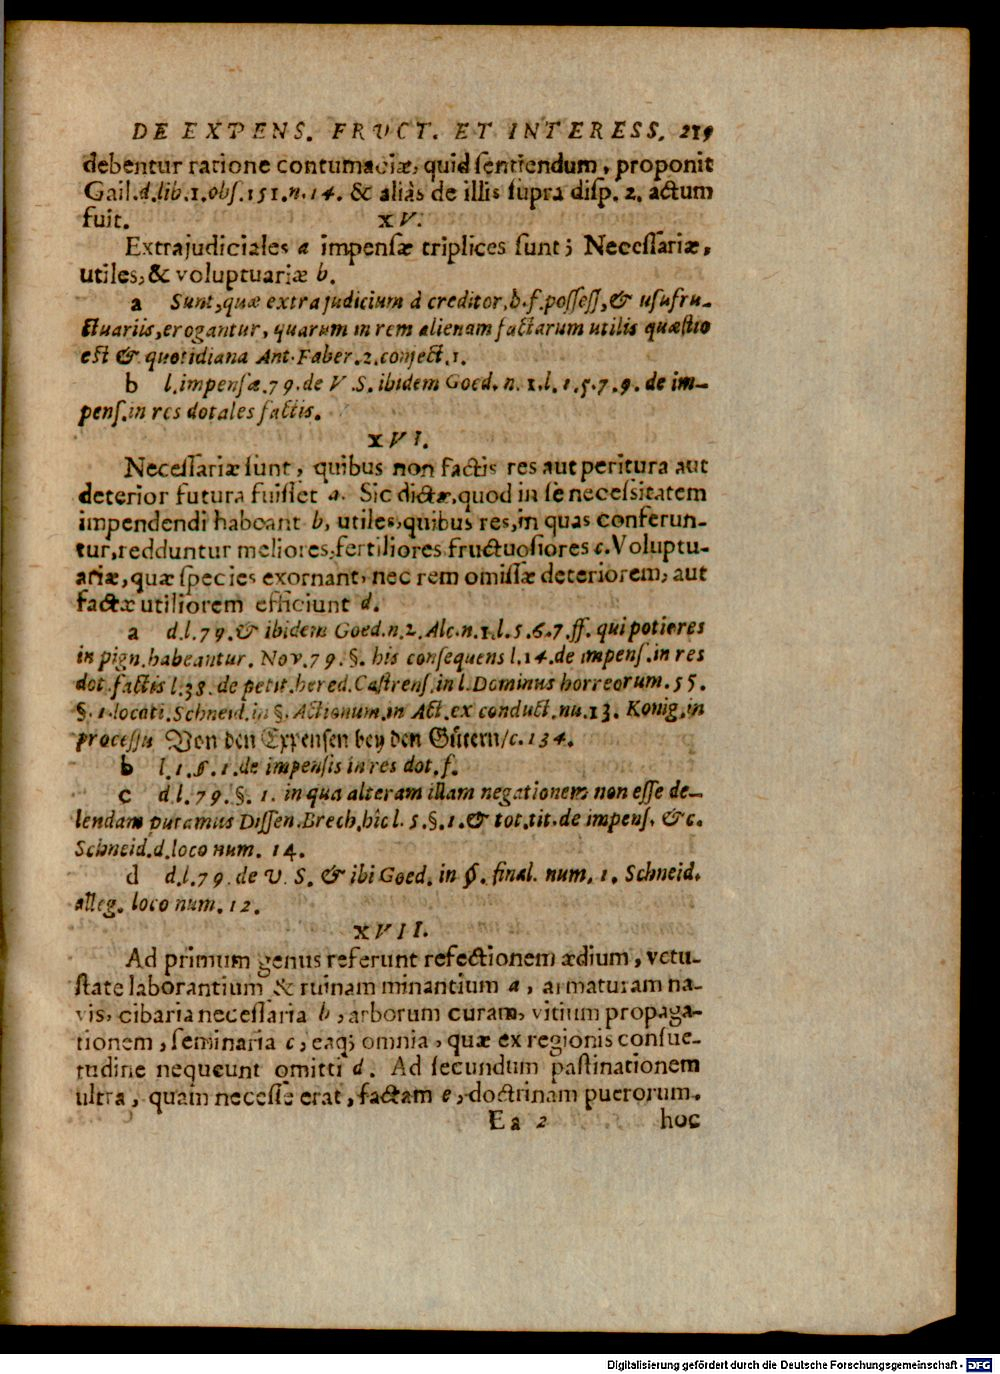 DE EXPENS. FRVCT. ET INTERESS. 219
debentur ratione contumaciæ, quid ſentiendum, proponit
Gail. d. lib. 1. obſ. 151. n. 14. & aliàs de illis ſupra diſp. 2. actum
fuit. XV.
Extrajudiciales a impenſæ triplices ſunt; Neceſſariæ,
utiles, & voluptuariæ b.
a Sunt, quæ extra judicium à creditor, b. f. poſſeſſ, & uſufru-
ctuariis, erogantur, quarum in rem alienam factarum utilis quæstio
est & quotidiana Ant. Faber. 2. conject. 1.
b l. impenſa. 79. de V. S. ibidem Goed. n. 1. l. 1. 5. 7. 9. de im-
penſ. in res dotales factis.
XVI.
Neceſſariæ ſunt, quibus non factis res aut peritura aut
deterior futura fuiſſet a. Sic dictæ, quod in ſe neceſsitatem
impendendi habeant b, utiles, quibus res, in quas conferun-
tur, redduntur meliores, fertiliores fructuoſiores c. Voluptu-
ariæ, quæ ſpecies exornant, nec rem omiſſæ deteriorem, aut
factæ utiliorem efficiunt d.
a d. l. 79. & ibidem Goed. n. 2. Alc. n. 1. l. 5. 6. 7. ff. qui potiores
in pign. habeantur. Nov. 79. §. his conſequens l. 14. de impenſ. in res
dot. factis l. 38. de petit. hered. Caſtrenſ. in l. Dominus horreorum. 55.
§. 1. locati. Schneid. in §. Actionum. in Act. ex conduct. nu. 13. Konig. in
proceſſu Von den Expenſen bey den Gütern/ c. 134.
b l. 1. §. 1. de impenſis in res dot. f.
c d. l. 79. §. 1. in qua alteram illam negationem non eſſe de-
lendam putamus Diſſen. Brech. hîc l. 5. §. 1. & tot. tit. de impenſ. &c.
Schneid. d. loco num. 14.
d d. l. 79. de V. S. & ibi Goed. in §. final. num. 1. Schneid.
alleg. loco num. 12.
XVII.
Ad primum genus referunt refectionem ædium, vetu-
ſtate laborantium & ruinam minantium a, armaturam na-
vis, cibaria neceſſaria b, arborum curam, vitium propaga-
tionem, ſeminaria c, eaq; omnia, quæ ex regionis conſue-
tudine nequeunt omitti d. Ad ſecundum paſtinationem
ultra, quam neceſſe erat, factam e, doctrinam puerorum.
Ee 2 hoc
Digitalisierung gefördert durch die Deutsche Forschungsgemeinschaft - DFG